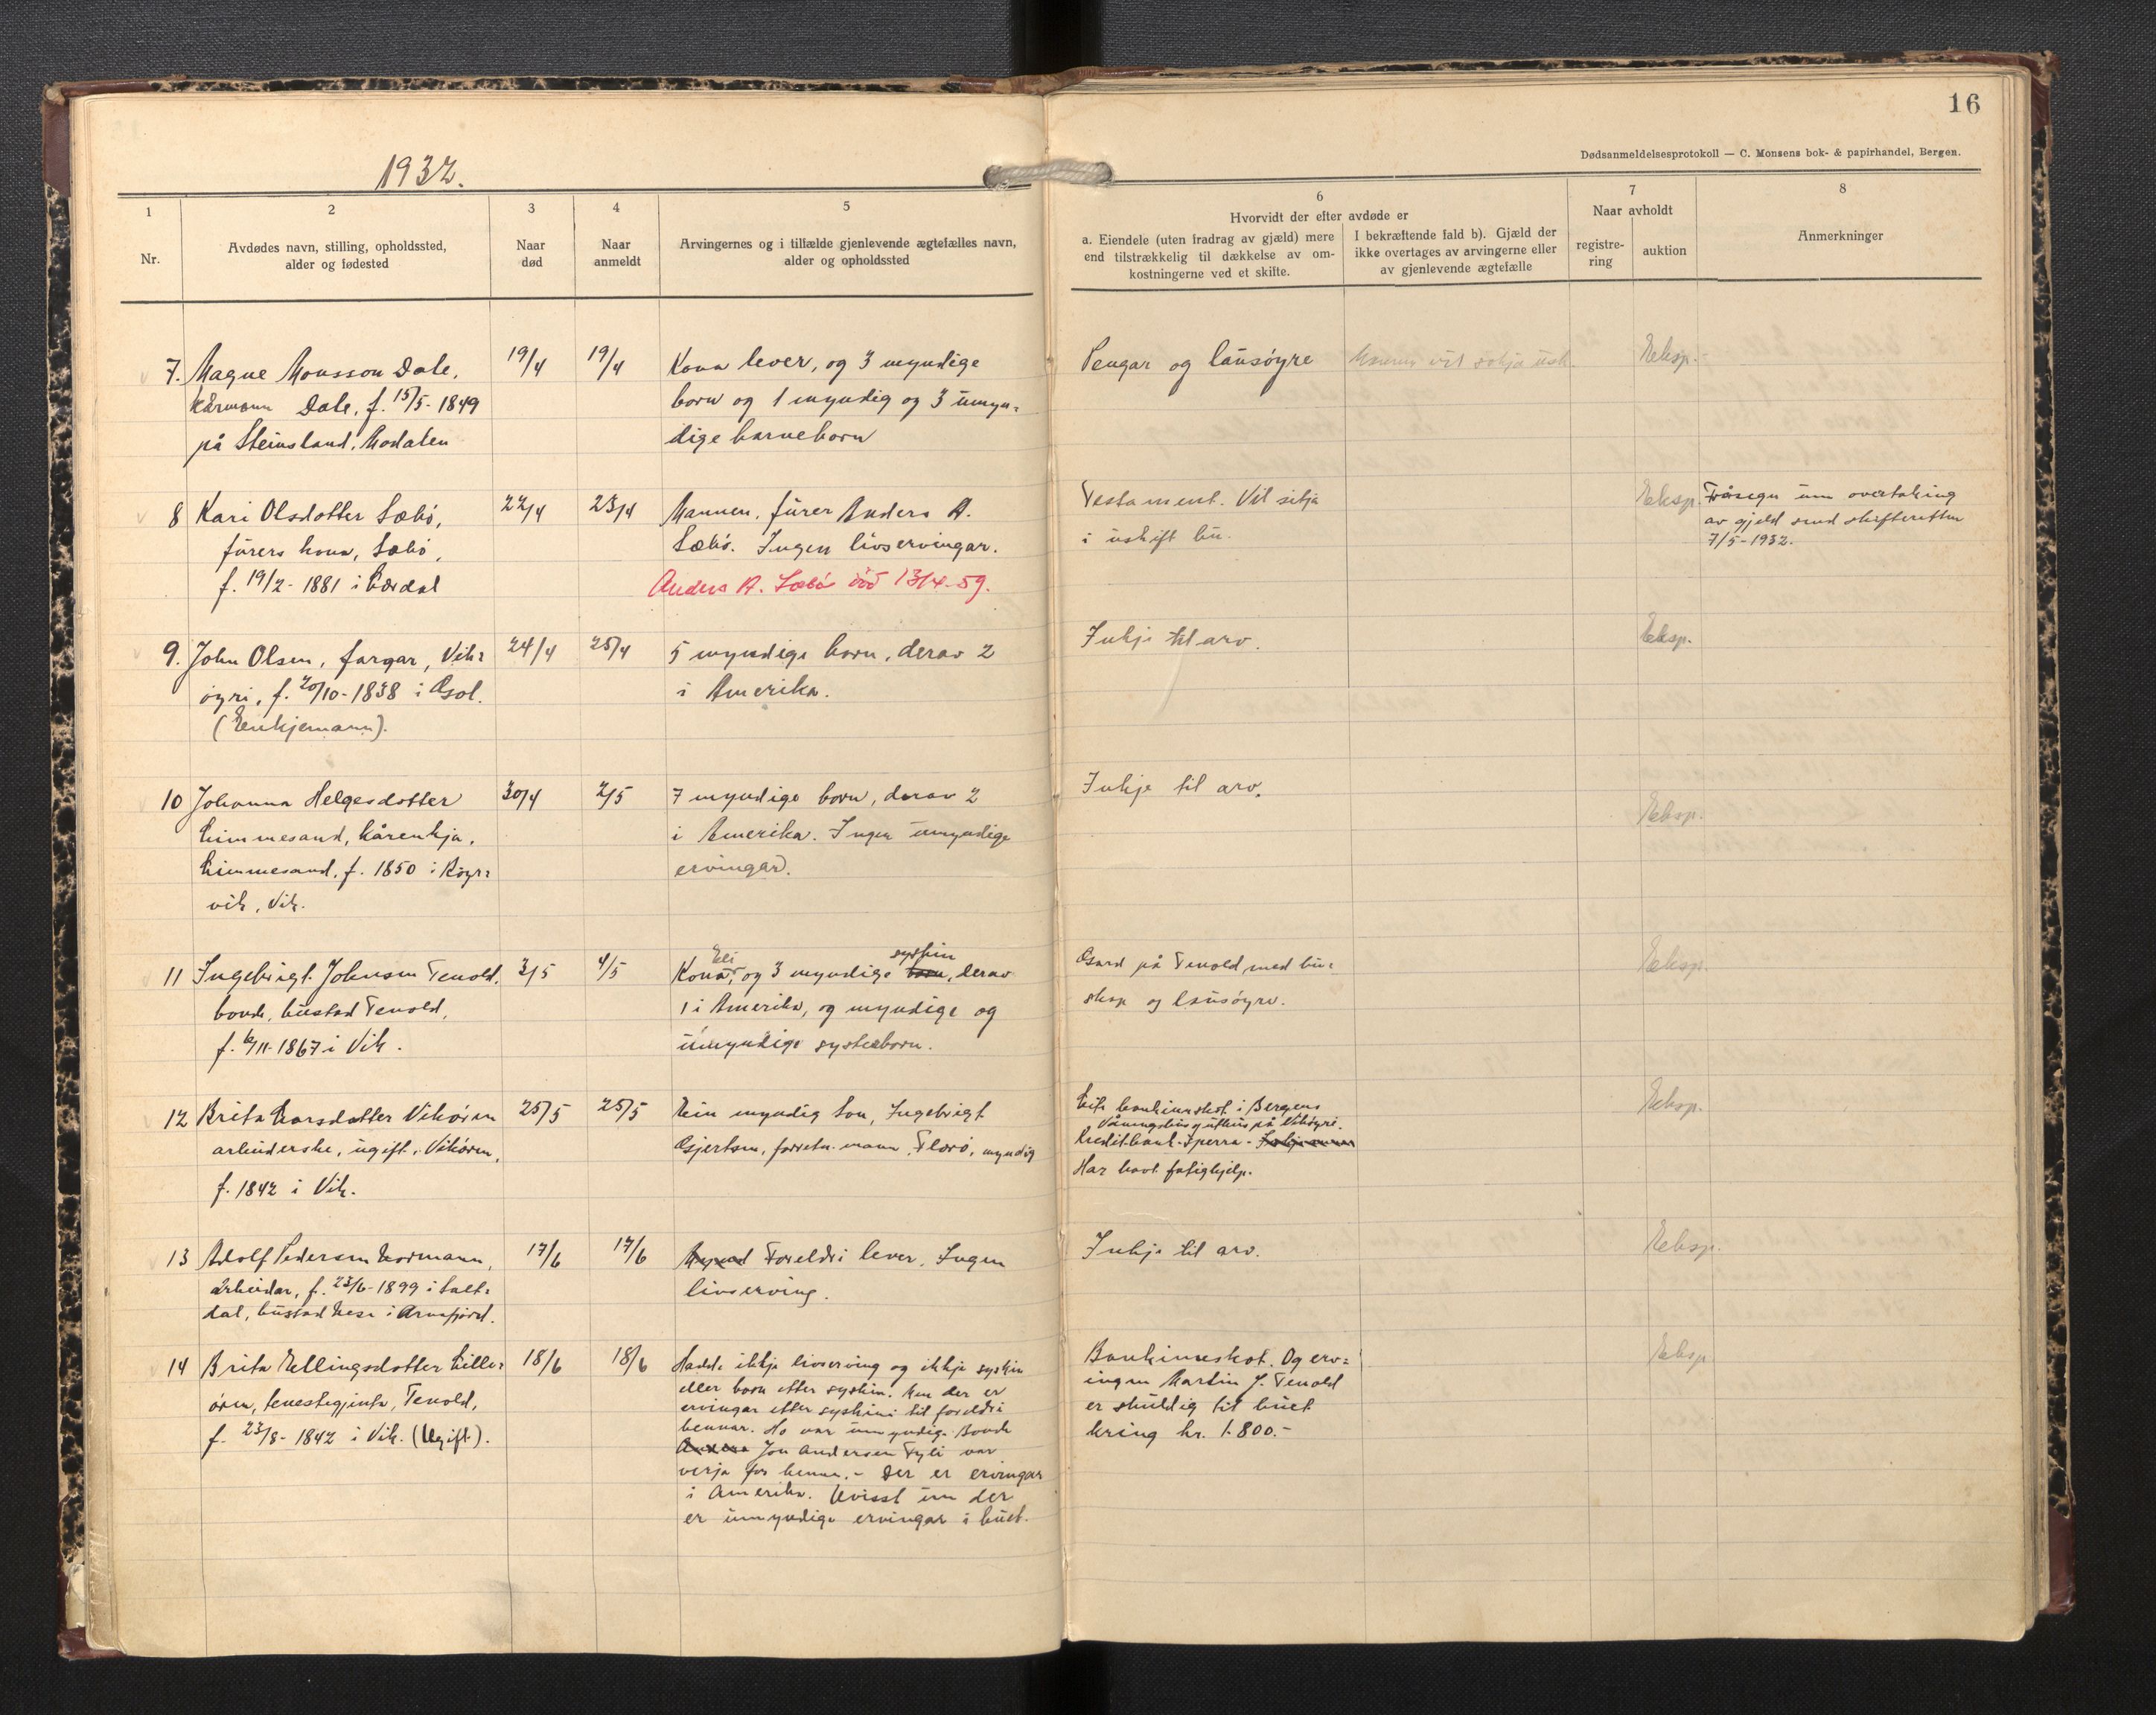 16
Dødsanmeldelsesprotokoll — C. Monsens bok- & papirhandel, Bergen.
1932.
1
2
3
4
5
6
7
8
Nr.
Avdødes navn, stilling, opholdssted,
alder og fødested
Naar
død
Naar
anmeldt
Arvingernes og i tilfælde gjenlevende ægtefælles navn,
alder og opholdssted
Hvorvidt der efter avdøde er
a. Eiendele (uten fradrag av gjæld) mere
end tilstrækkelig til dækkelse av om-
kostningerne ved et skifte.
I bekræftende fald b). Gjæld der
ikke overtages av arvingerne eller
av gjenlevende ægtefælle
Naar avholdt
registre-
ring
auktion
Anmerkninger
7. Magne Monsson Dale,
kårmann Dale, f. 15/5-1849
på Steinsland, Modalen
19/4
19/4
Kona lever, og 3 myndige
born og 1 myndig og 3 umyn=
dige barneborn
Pengar og lausøyre
Eksp.
8 Kari Olsdotter Sæbø,
fürers kona, Sæbø,
f. 19/2-1881 i Lærdal
22/4
23/4
Mannen, fürer Anders A.
Sæbø. Ingen livservingar.
Anders A. Sæbø död 13/4-59.
Testament. Vil sitja
i uskift bu.
Eksp.
Fråsegn um overtaking
av gjeld send skifteretten
7/5-1932.
9. John Olsen, fargar, Vik=
øyri, f. 20/10-1838 i Gol.
(Enkjemann).
24/4
25/4
5 myndige born, derav 2
i Amerika.
Inkje til arv.
Eksp.
10 Johanna Helgesdotter
Limmesand, kårenkja,
Limmesand, f. 1850 i Røyr=
vik, Vik.
30/4
2/5
7 myndige born, derav 2
i Amerika. Ingen umyndige
ervingar.
Inkje til arv.
Eksp.
11 Ingebrigt Johnsen Tenold,
bonde, bustad Tenold,
f. 6/11-1867 i Vik.
3/5
4/5
Eli syskin
Kona, og 3 myndige born, derav
1 i Amerika, og myndige og
umyndige systerborn.
Gard på Tenold med bu=
skap og lausøyre.
Eksp.
12 Brita Larsdotter Vikøren
arbeiderske, ugift, Vikøren,
f. 1842 i Vik.
25/5
25/5
Ein myndig son, Ingebrigt
Gjertsen, forretn.mann, Florø, myndig
Lite bankinnskot i Bergens
Våningshus og uthus på Vikøyri.
Kreditbank - Sperra -
Har havt fatighjelp.
Eksp.
13 Adolf Pedersen Normann,
arbeidar, f. 23/6-1899 i Salt=
dal, bustad Nese i Arnafjord.
17/6
17/6
Foreldri lever. Ingen
livserving.
Inkje til arv.
Eksp.
14 Brita Ellingsdotter Lille=
øren, tenestegjenta, Tenold,
f. 23/8-1842 i Vik. (Ugift).
18/6
18/6
Hadde ikkje livserving og ikkje syskin
eller born etter syskin. Men der er
ervingar etter syskini til foreldri
hennar. Ho var umyndig. Bonde
Anders Jon Andersen Tyli var
verja for henne. - Der er ervingar
i Amerika. Uvisst um der
er umyndige ervingar i buet.
Bankinnskot. Og erv=
ingen Martin J. Tenold
er skuldig til buet
kring kr. 1.800.-
Eksp.